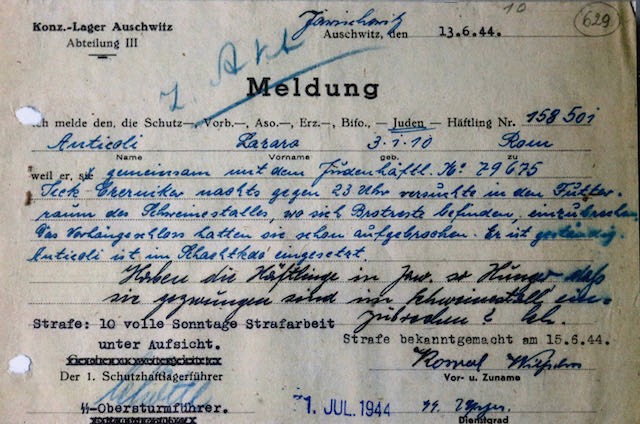 10
629
Konz.-Lager Auschwitz
Abteilung III
Jawischowitz
Auschwitz, den 13.6.44.
z. Akt
Meldung
Ich melde den, die Schutz—, Vorb.—, Aso.—, Erz.—, Bifo.—, Juden — Häftling Nr. 158501
Anticoli Lazaro 3.1.10 Rom
Name Vorname geb. zu
weil er, sie gemeinsam mit dem Judenhäftl. No 79675
nachts gegen 23 Uhr versuchte in den Futter-
raum des Schweinestalles, wo sich Brotreste befinden, einzubrechen.
Das Vorhängeschloss hatten sie schon aufgebrochen. Er ist geständig.
Anticoli ist im Schachtkdo eingesetzt.
Haben die Häftlinge in Jaw. so Hunger daß
sie gezwungen sind im Schweinestall ein-
zubrechen?
Strafe: 10 volle Sonntage Strafarbeit
unter Aufsicht.
Strafe bekanntgemacht am 15.6.44.
Der 1. Schutzhaftlagerführer
Vor- u. Zuname
SS-Obersturmführer.
1. JUL. 1944
Dienstgrad